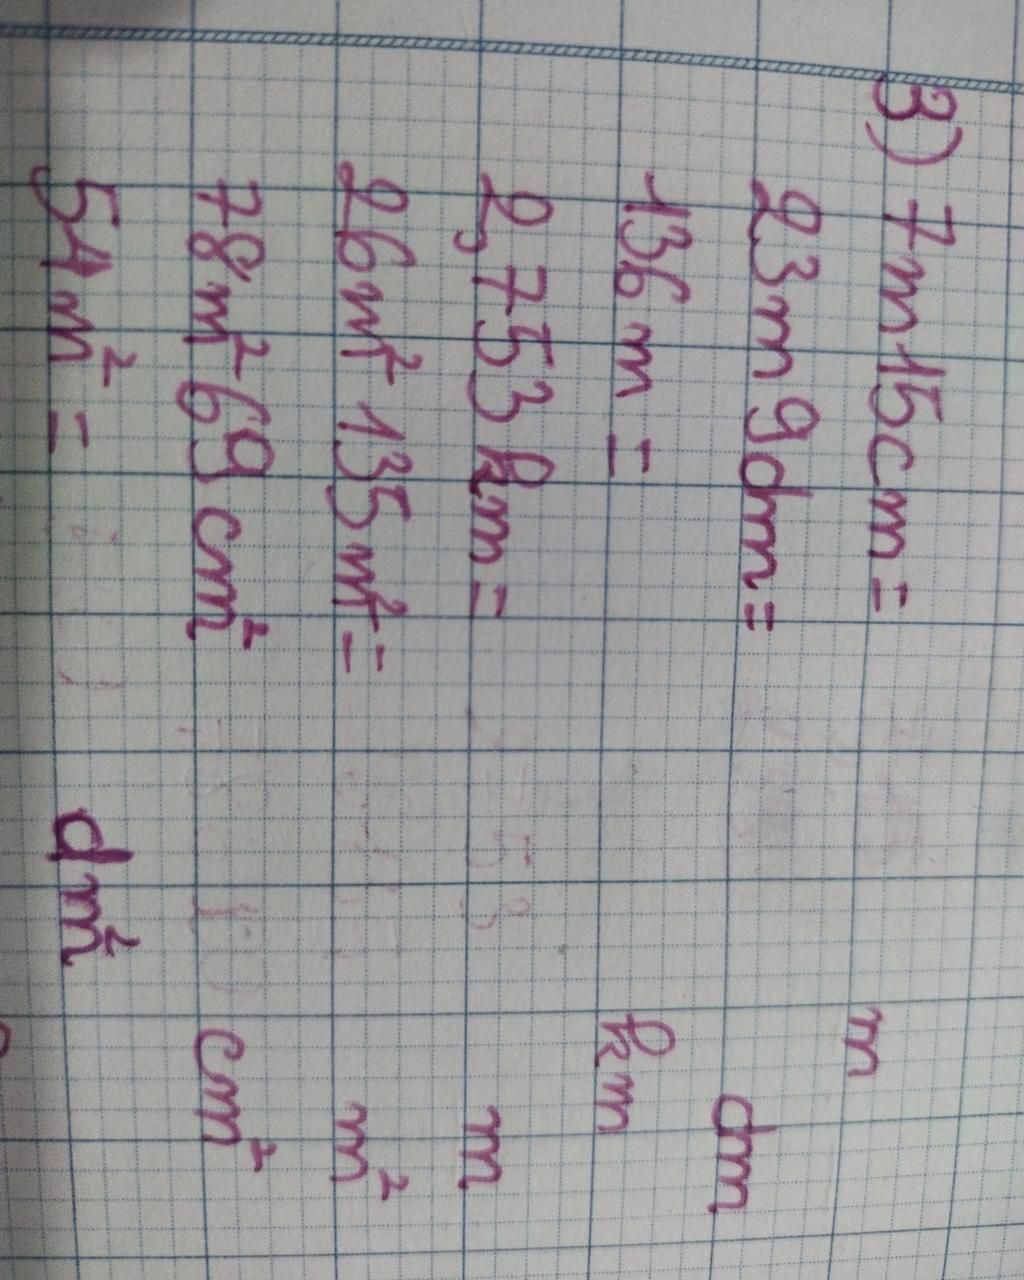 3) 7m15cm = m
23m9dm = dm
136m = km
2,753km = m
26m² 135m² = m²
78m² 69cm² cm²
54m² = dm²